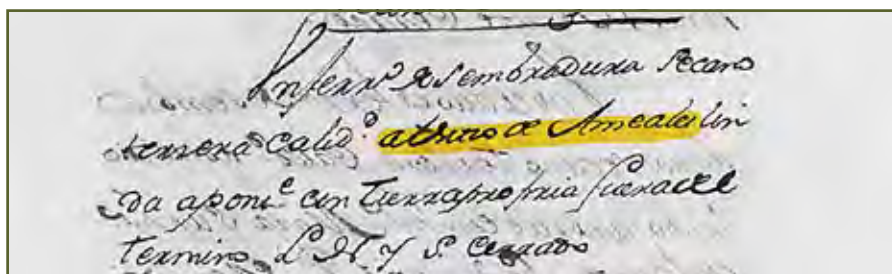 Un ferr.º de sembradura secano
terzera calid.º a
de Ameales lin
da a poni.e con tierra propria fuera del
termino L. N. y S. Cerrado